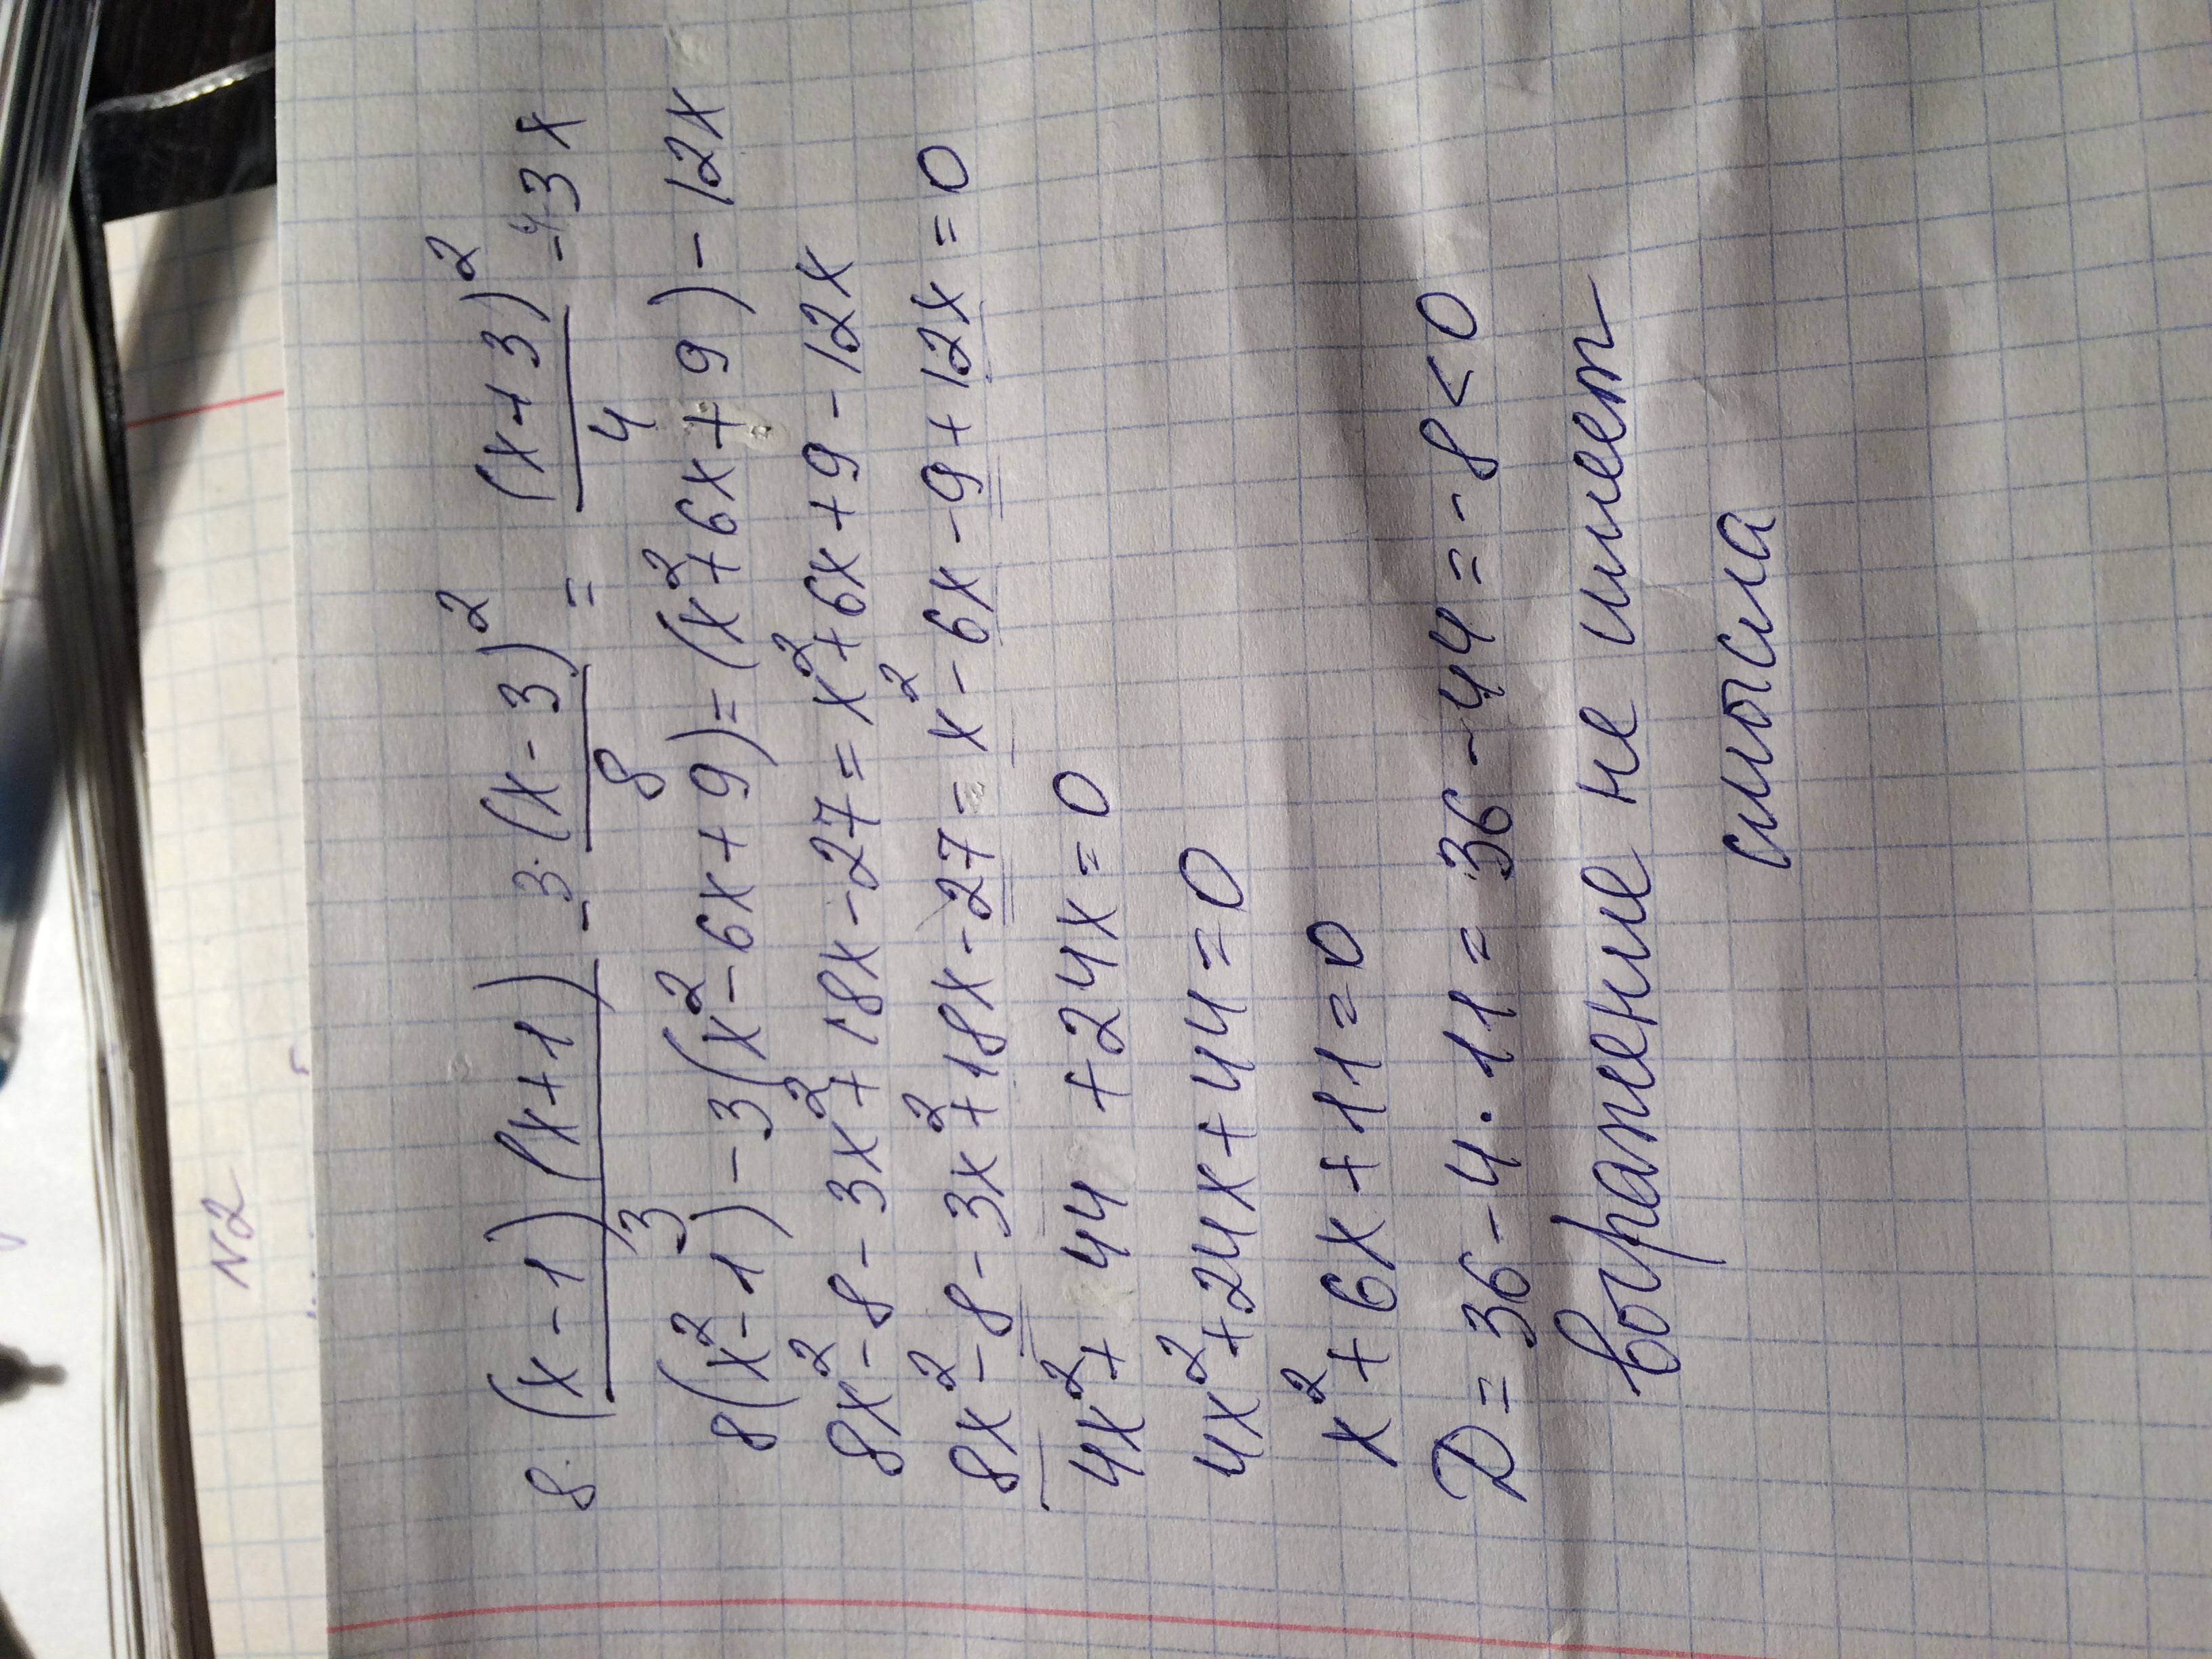 N2
8·(x-1)(x+1)/3 - 3·(x-3)²/8 = (x+3)²/4 - ⁴3x
8(x²-1) - 3(x²-6x+9) = (x²+6x+9) - 12x
8x²-8-3x²+18x-27 = x²+6x+9-12x
8x²-8-3x²+18x-27 = x²-6x-9+12x=0
4x²+ 44 +24x=0
4x²+24x+44=0
x²+6x+11=0
D=36-4·11=36-44=-8<0
выражение не имеет
смысла